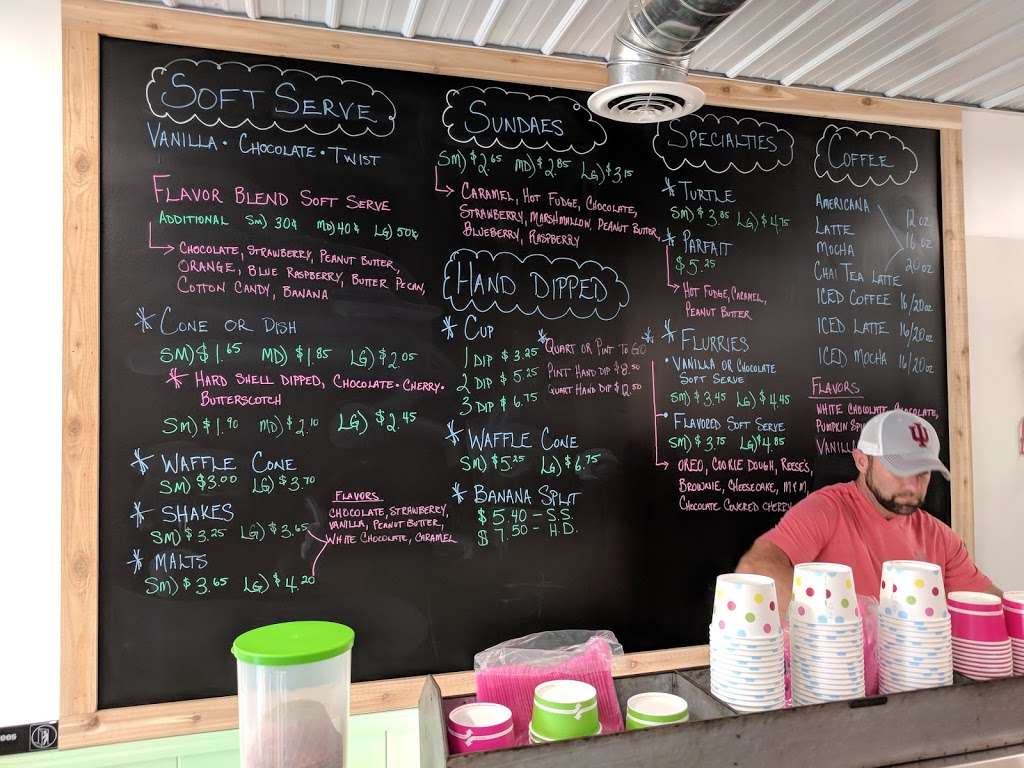 SOFT SERVE
VANILLA • CHOCOLATE • TWIST
FLAVOR BLEND SOFT SERVE
ADDITIONAL SM) 30¢ MD) 40¢ LG) 50¢
CHOCOLATE, STRAWBERRY, PEANUT BUTTER,
ORANGE, BLUE RASPBERRY, BUTTER PECAN,
COTTON CANDY, BANANA
* CONE OR DISH
SM) $1.65 MD) $1.85 LG) $2.05
* HARD SHELL DIPPED, CHOCOLATE • CHERRY •
BUTTERSCOTCH
SM) $1.90 MD) $2.10 LG) $2.45
* WAFFLE CONE
SM) $3.00 LG) $3.70
* SHAKES
SM) $3.25 LG) $3.65
* MALTS
SM) $3.65 LG) $4.20
FLAVORS
CHOCOLATE, STRAWBERRY,
VANILLA, PEANUT BUTTER,
WHITE CHOCOLATE, CARAMEL
SUNDAES
SM) $2.65 MD) $2.85 LG) $3.15
CARAMEL, HOT FUDGE, CHOCOLATE,
STRAWBERRY, MARSHMALLOW, PEANUT BUTTER,
BLUEBERRY, RASPBERRY
HAND DIPPED
* CUP
1 DIP $3.25
2 DIP $5.25
3 DIP $6.75
* QUART OR PINT TO GO *
PINT HAND DIP $8.50
QUART HAND DIP $12.50
* WAFFLE CONE
SM) $5.25 LG) $6.75
* BANANA SPLIT
$5.40 - S.S.
$7.50 - H.D.
SPECIALTIES
* TURTLE
SM) $3.85 LG) $4.75
* PARFAIT
$5.25
HOT FUDGE, CARAMEL,
PEANUT BUTTER
* FLURRIES
• VANILLA OR CHOCOLATE
SOFT SERVE
SM) $3.45 LG) $4.45
• FLAVORED SOFT SERVE
SM) $3.75 LG) $4.85
OREO, COOKIE DOUGH, REESE'S,
BROWNIE, CHEESECAKE, M&M,
CHOCOLATE COVERED CHERRY
COFFEE
AMERICANA
LATTE 12 oz
MOCHA 16 oz
CHAI TEA LATTE 20 oz
ICED COFFEE 16/20oz
ICED LATTE 16/20oz
ICED MOCHA 16/20oz
FLAVORS
WHITE CHOCOLATE, CHOCOLATE,
PUMPKIN
VANILLA